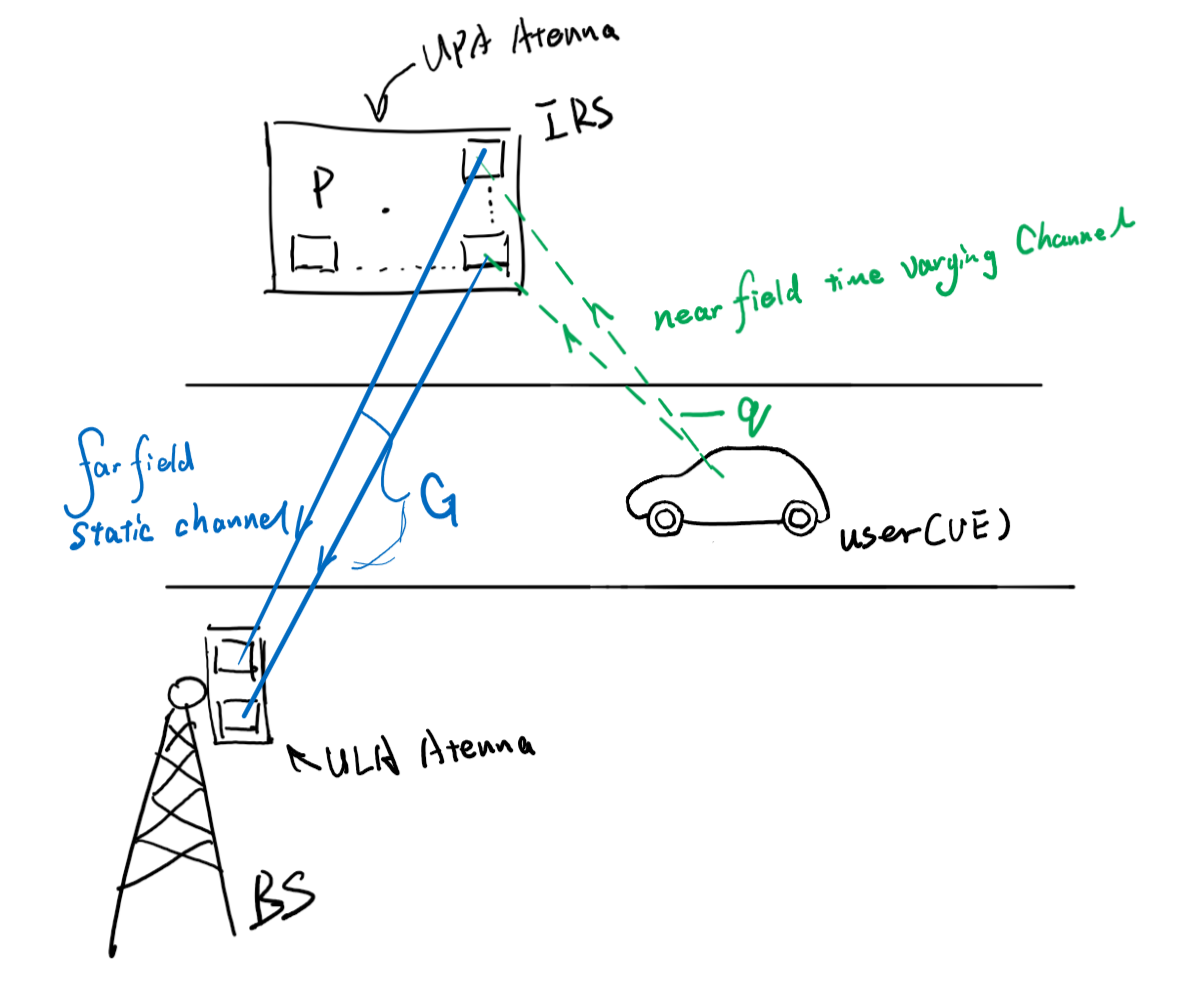 UPA Atenna
IRS
P
near field time varying Channel
q
far field
static channel
G
user(UE)
ULA Atenna
BS